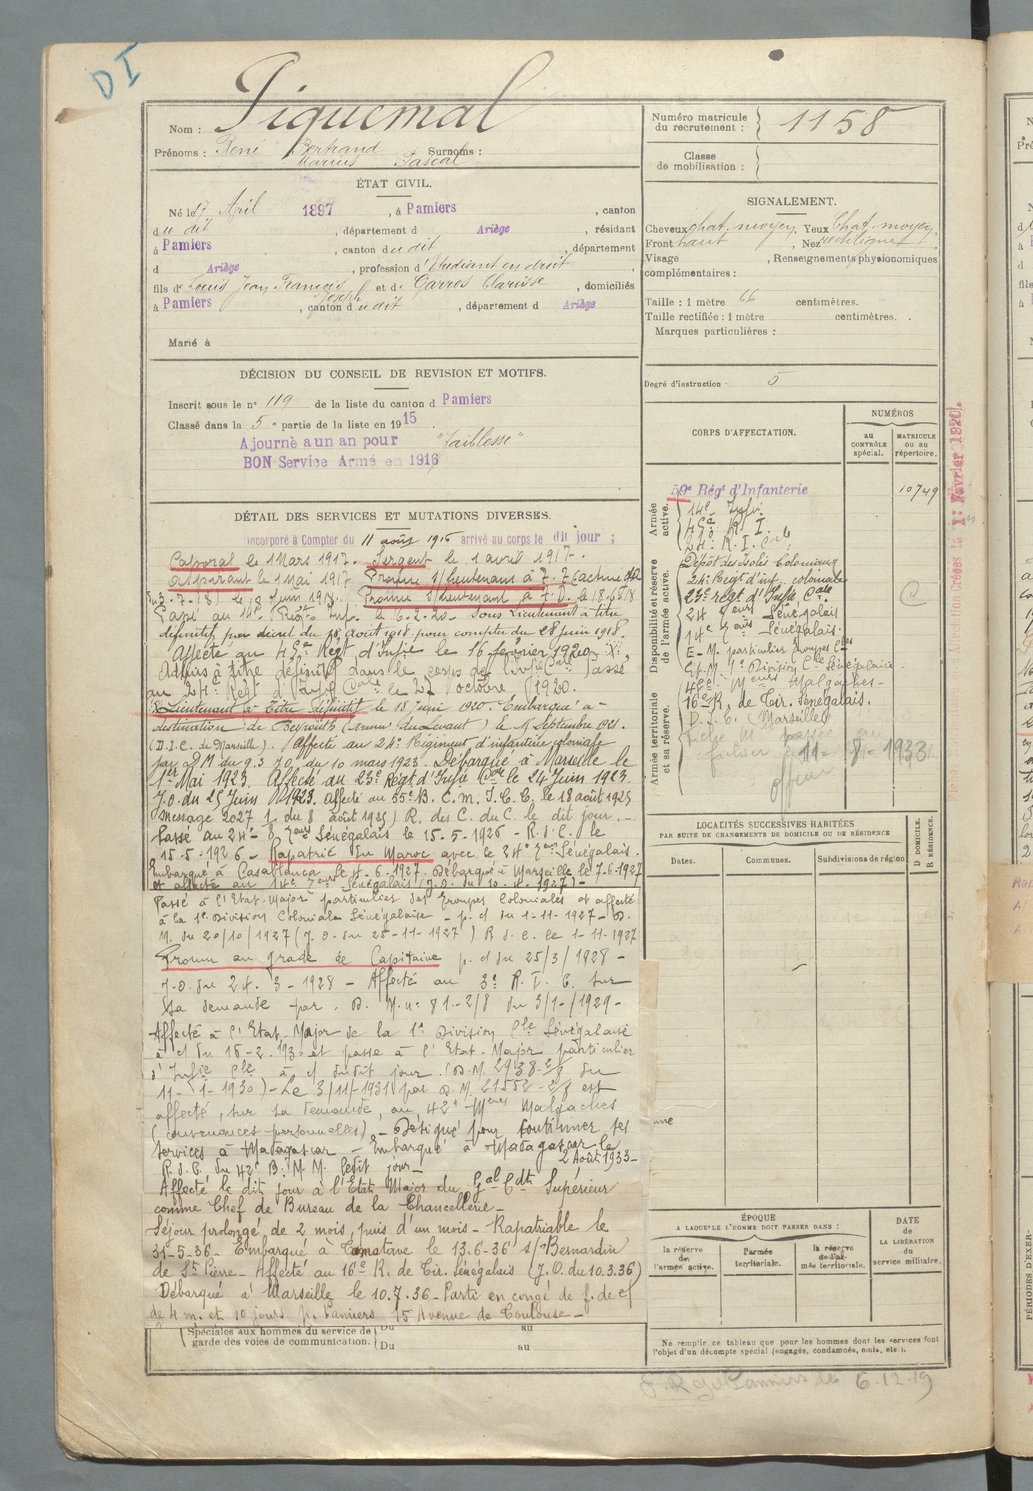 DI
Nom : Piquemal
Prénoms : René Bertrand Surnoms :
Marius Pascal
ÉTAT CIVIL.
Né le 7 Avril 1897, à Pamiers, canton
du dit, département d Ariège, résidant
à Pamiers, canton du dit, département
d Ariège, profession d'étudiant en droit
fils de Louis Jean François Joseph et de Garres Clarisse, domiciliés
à Pamiers, canton du dit, département d Ariège
Marié à
DÉCISION DU CONSEIL DE REVISION ET MOTIFS.
Inscrit sous le n° 119 de la liste du canton d Pamiers
Classé dans la 5e partie de la liste en 1915
Ajourné a un an pour "Faiblesse"
BON Service Armé en 1916
DÉTAIL DES SERVICES ET MUTATIONS DIVERSES.
Incorporé à Compter du 11 août 1916 arrivé au corps le dit jour ;
Caporal le 1 Mars 1917. Sergent le 1 avril 1917.
aspirant le 1 Mai 1917 Promu S/lieutenant à T. T.
Promu S/lieutenant à T.D. le
Passé au 14e Régt Inf. le 6.2.20. Sous Lieutenant à titre
définitif par décret du 18 août 1918 pour compter du 28 juin 1918.
Affecté au 45e Régt d'Infie le 16 février 1920.
Admis à titre définitif dans le corps de l'Infie Cale Passé
au 24e Régt d'Infie Cale le 22 octobre 1920.
Lieutenant à Titre définitif le 18 Juin 1920. Embarqué à
destination de Beyrouth (Armée du Levant) le 1 Septembre 1921.
(D.I.C. de Marseille). Affecté au 24e Régiment d'infanterie coloniale
par D.M. du 9.3 J.O. du 10 mars 1923. Débarqué à Marseille le
1er Mai 1923. Affecté au 23e Régt d'Infie Cole le 24 Juin 1923.
J.O. du 25 Juin 1923. Affecté au 55e B.C.M.I.C.C. le 18 août 1925
message 2027 1. du 8 août 1925) R. des C. du C. le dit jour.
Passé au 24e Sénégalais le 15.5.1926 - R.d.C. le
15-5-1926 - Rapatrié du Maroc avec le 24e Sénégalais.
Embarqué à Casablanca le 4.6.1927. Débarqué à Marseille le 7.6.1927
et affecté au 14e Sénégalais (J.O. du 10.4.1927) -
Passé à l'Etat-Major particulier des Troupes Coloniales et affecté
à la 1e Division Coloniale Sénégalaise - p. c/ du 1-11-1927 - D.
M. du 20/10/1927 (J.O. du 25-11-1927) R d.c. le 1-11-1927
Promu au grade de Capitaine p. c/ du 25/3/1928 -
J.O. du 24.3-1928 - Affecté au 3e R.I.C. sur
sa demande par D.M. n° 81-2/8 du 3/1/1929 -
Affecté à l'Etat-Major de la 1e Division Cle Sénégalaise
à c/ du 15-2-1930 et passe à l'Etat-Major particulier
d'Infie Cle à c/ dudit jour. (D.M. 2938-2/8 du
11-1-1930) - Le 3/11/1931 par D.M. 21552-2/8 est
affecté, sur sa demande, au 42e Meurs Malgaches
(convenances personnelles) - Désigné pour continuer ses
services à Madagascar - Embarqué à Madagascar le
2 Août 1933 -
R.d.C. du 42e B.M.M. ledit jour -
Affecté le dit jour à l'Etat Major du Gal Cdt Supérieur
comme Chef de Bureau de la Chancellerie -
Séjour prolongé de 2 mois, puis d'un mois - Rapatriable le
31-5-36 - Embarqué à Tamatave le 13.6.36 s/ Bernardin
de St Pierre - Affecté au 16e R. de Tir. Sénégalais (J.O. du 10.3.36)
Débarqué à Marseille le 10.7.36 - Parti en congé de f. de c/
de 4 m. et 10 jours p. Pamiers 15 Avenue de Toulouse -
Spéciales aux hommes du service de
garde des voies de communication.
Du au
Du au
Numéro matricule
du recrutement : 1158
Classe
de mobilisation :
SIGNALEMENT.
Cheveux chat. moyen Yeux Chat. moyen
Front haut, Nez rectiligne
Visage , Renseignements physionomiques
complémentaires :
Taille : 1 mètre 66 centimètres.
Taille rectifiée : 1 mètre centimètres.
Marques particulières :
Degré d'instruction : 5
CORPS D'AFFECTATION.
NUMÉROS
AU CONTRÔLE spécial.
MATRICULE ou au répertoire.
Armée active.
59e Régt d'Infanterie 10749
14e Infie
45e R.I.
24e R.I. Cale
Disponibilité et réserve de l'armée active.
Dépôt des Isolés Coloniaux
24e Régt d'inf. coloniale
23e régt d'Infie Cale C
24 Sénégalais
14e Sénégalais.
E-M. particulier Troupes Cles
E.M. 1e Division Cle Sénégalaise
42e Meurs Malgaches -
Armée territoriale et sa réserve.
16e R. de Tir. Sénégalais.
D.I.C. (Marseille)
11-8-1933
1er Février 1920.
LOCALITÉS SUCCESSIVES HABITÉES
PAR SUITE DE CHANGEMENTS DE DOMICILE OU DE RÉSIDENCE
Dates. Communes. Subdivisions de région
D DOMICILE.
R RÉSIDENCE.
ÉPOQUE
A LAQUELLE L'HOMME DOIT PASSER DANS :
la réserve de l'armée active.
l'armée territoriale.
la réserve de l'armée territoriale.
DATE de LA LIBÉRATION du service militaire.
Ne remplir ce tableau que pour les hommes dont les services font
l'objet d'un décompte spécial (engagés, condamnés, omis, etc.).
Pamiers le 6.12.19
PÉRIODES D'EXER-